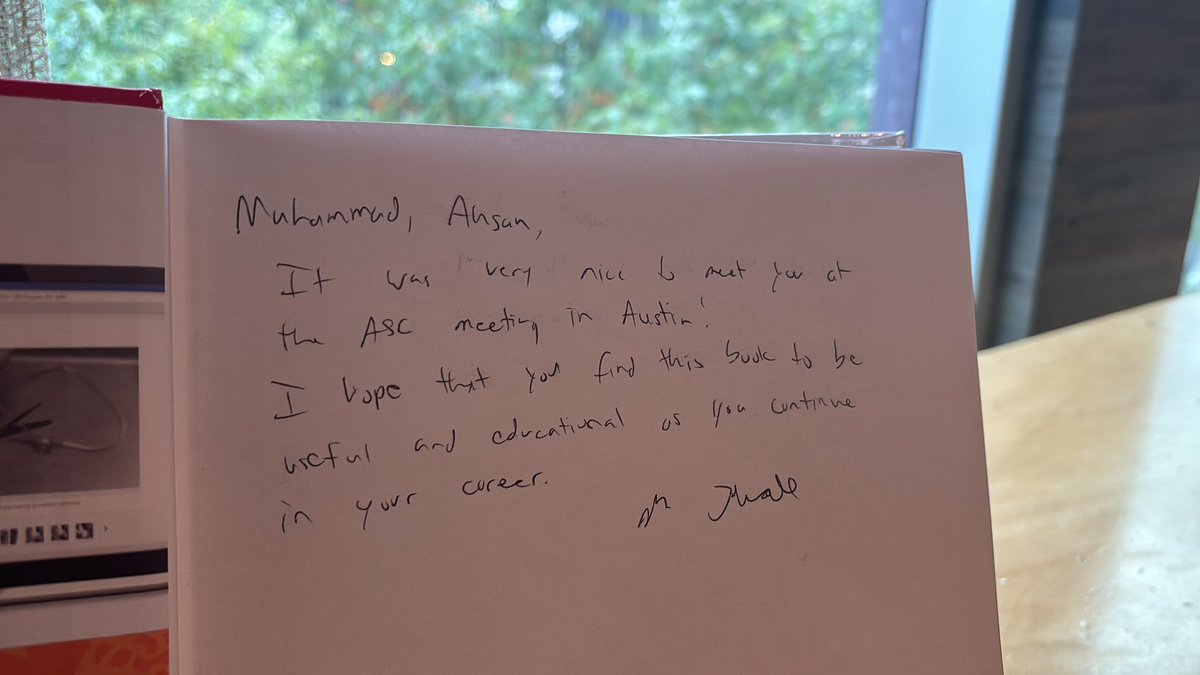 Muhammad, Ahsan,
It was very nice to meet you at
the ASC meeting in Austin!
I hope that you find this book to be
useful and educational as you continue
in your career.